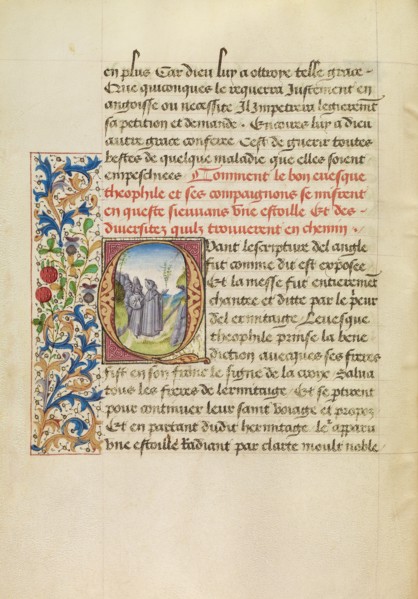 en plus Car dieu luy a ottroye telle grace .
Que quiconques le requerra Justement en
angoisse ou necessite Il Impetrera legierement
sa peticion et demande . Encores luy a dieu
autre grace conferee Cest de guerir toutes
bestes de quelque maladie que elles soient
empeschiees Comment le bon euesque
theophile et ses compaignons se misrent
en queste sieuuans vne estoille Et des
diuersitez quilz trouuerent en chemin .
Quant lescripture del angle
fut comme dit est exposee
Et la messe fut entierement
chantee et ditte par le prieur
del ermitaige Leuesque
theophile prinse la bene
diction auecques ses freres
fist en son front le signe de la croix Salua
tous les freres de lermitaige Et se ptirent
pour continuer leur saint voiage et propos
Et en partant dudit hermitaige le apparu
vne estoille Radiant par clarte moult noble